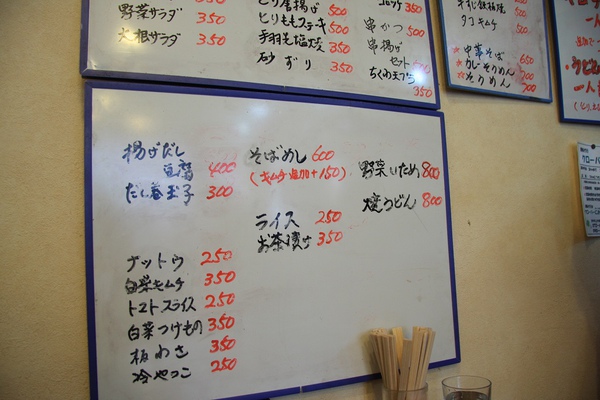 野菜サラダ 350
大根サラダ 350
とり唐揚げ 500
とりももステーキ 500
手羽先塩焼 350
砂ずり 350
コロッケ 350
串かつ 500
串揚げ
セット
ちくわ天ぷら
350
タコキムチ 500
中華そば 650
700
そうめん 700
揚げだし
豆腐 400
だし巻玉子 300
そばめし 600
(キムチ追加+150)
野菜いため 800
焼うどん 800
ライス 250
お茶漬け 350
ナットウ 250
白菜キムチ 350
トマトスライス 250
白菜つけもの 350
板わさ 350
冷やっこ 250